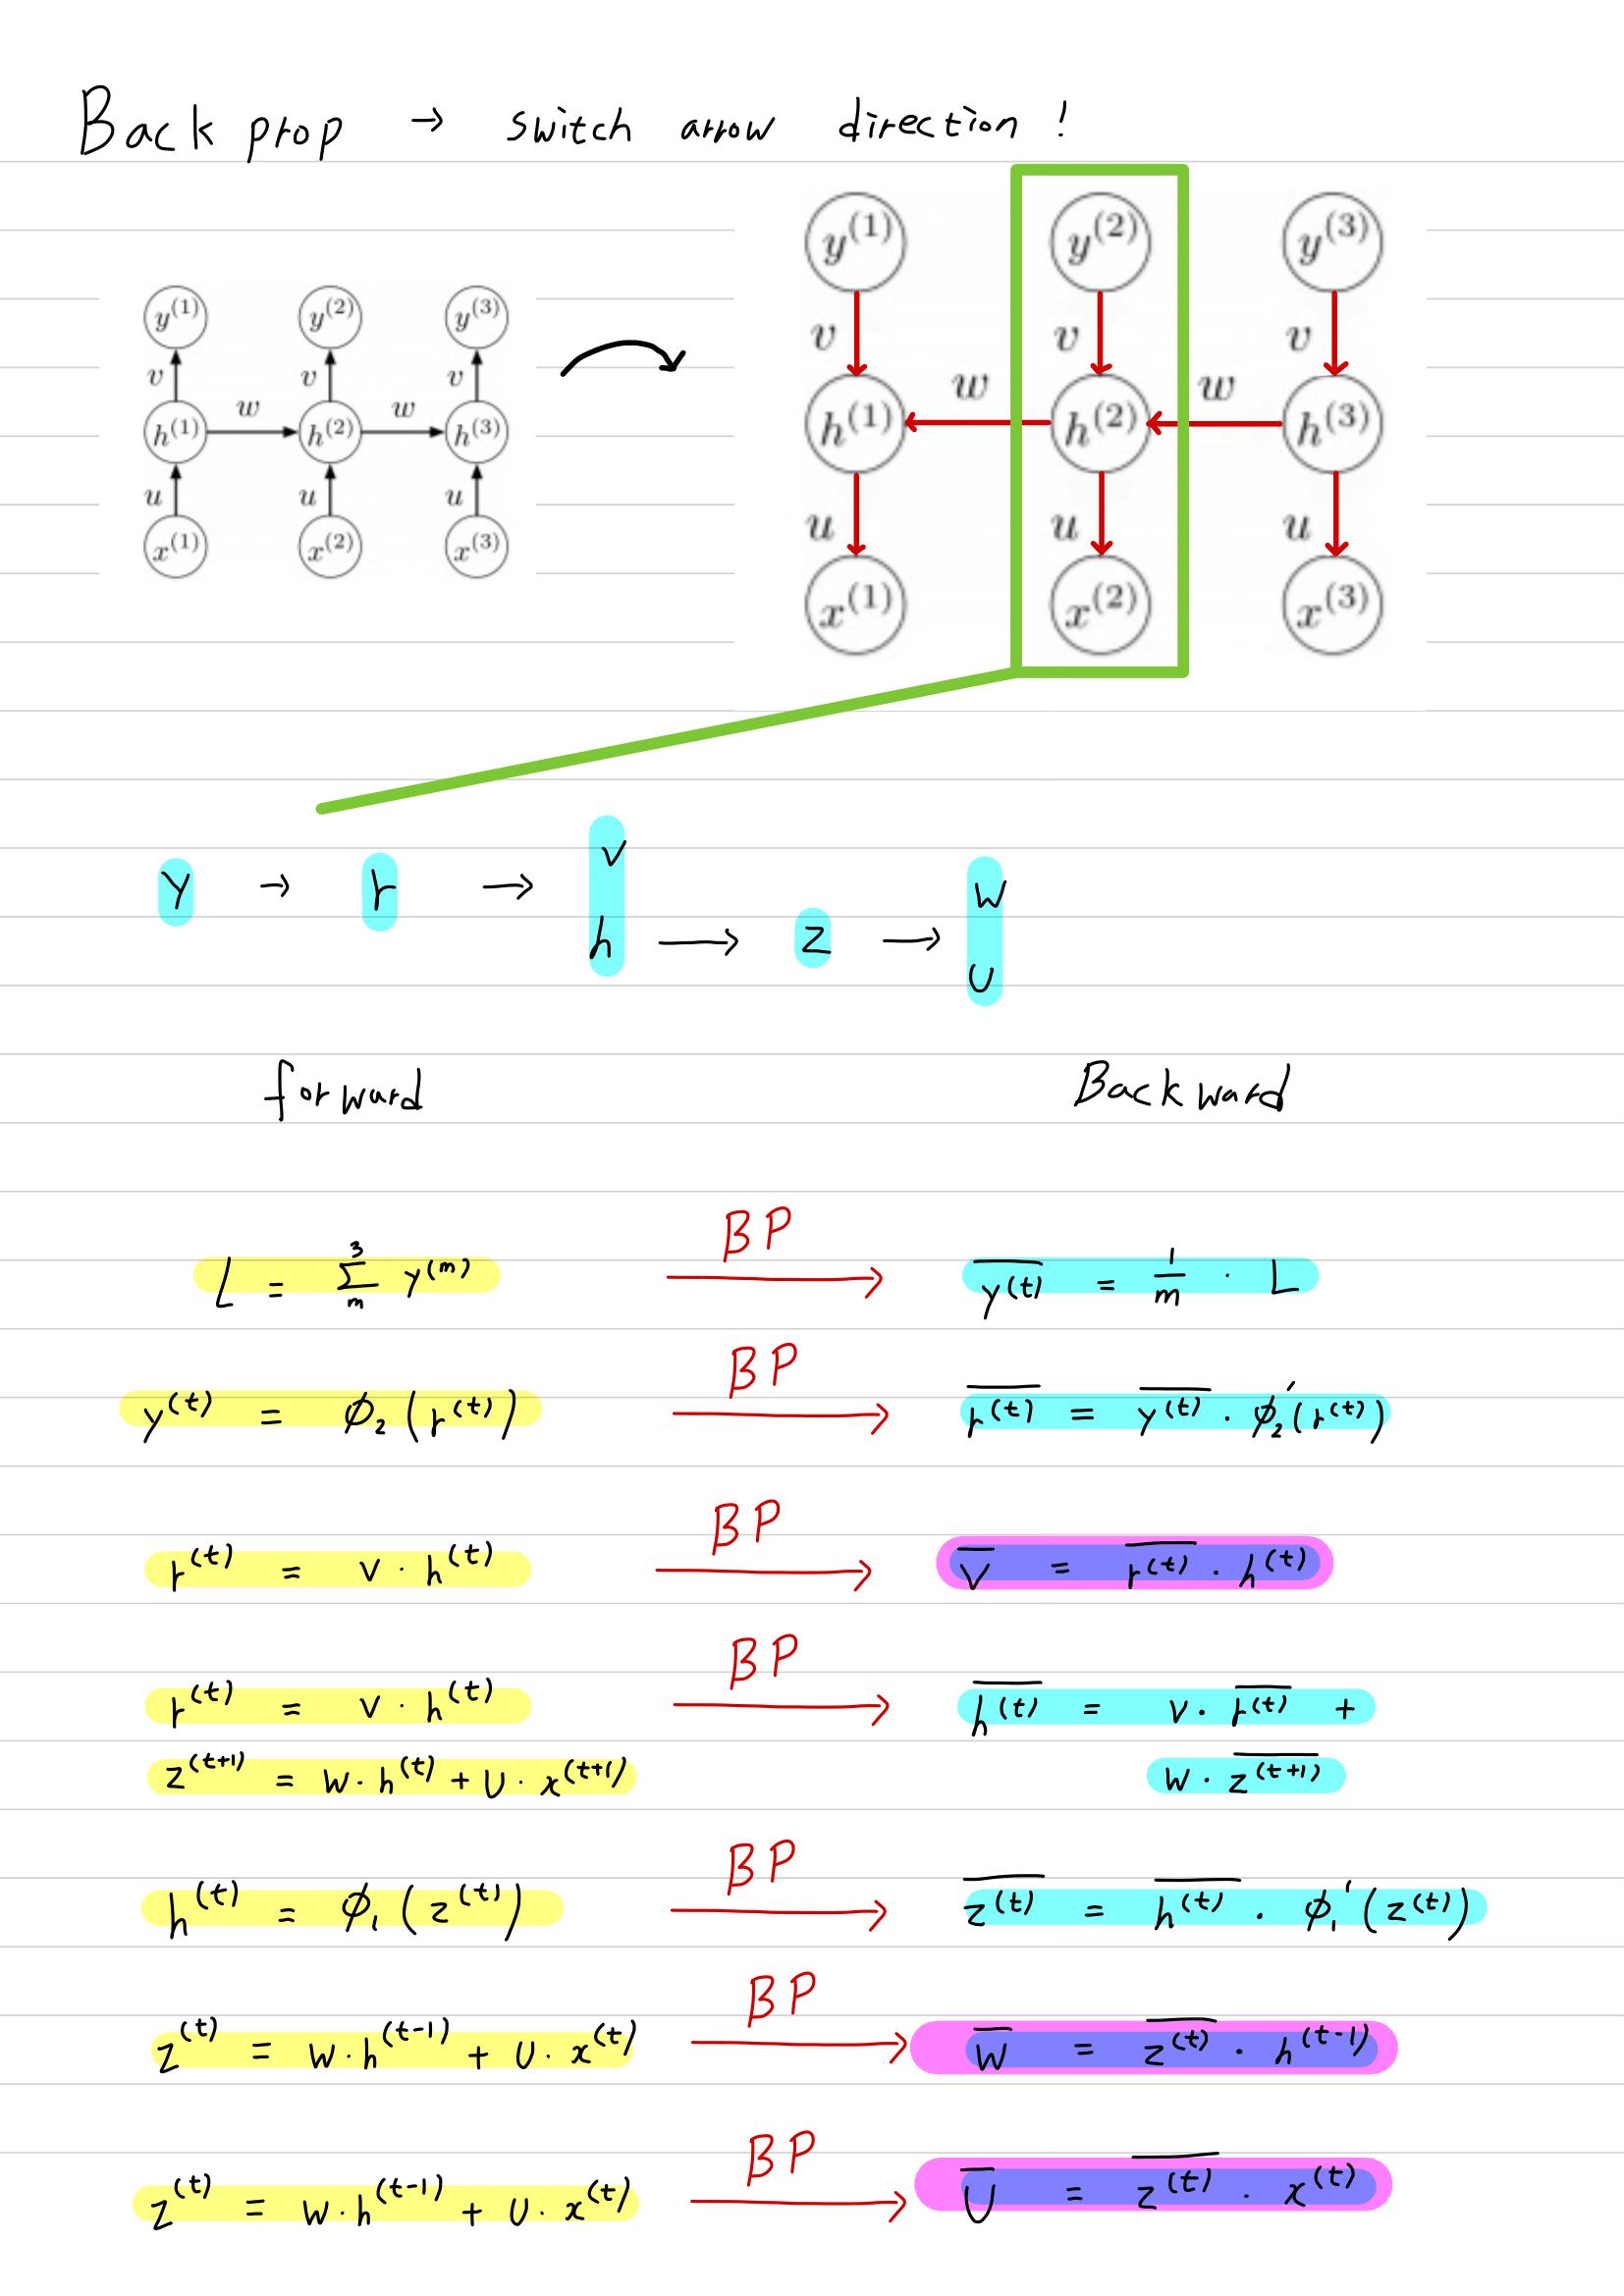 Back prop → switch arrow direction!
y^(1) y^(2) y^(3)
v v v
w w
h^(1) h^(2) h^(3)
u u u
x^(1) x^(2) x^(3)
y^(1) y^(2) y^(3)
v v v
w w
h^(1) h^(2) h^(3)
u u u
x^(1) x^(2) x^(3)
v w
y → r → h → z → U
forward Backward
BP
L = Σ_m^3 y^(m) → y̅^(t) = 1/m · L
BP
y^(t) = ϕ₂(r^(t)) → r̅^(t) = y̅^(t) · ϕ₂'(r^(t))
BP
r^(t) = v · h^(t) → v̅ = r̅^(t) · h^(t)
BP
r^(t) = v · h^(t) → h̅^(t) = v · r̅^(t) +
z^(t+1) = w · h^(t) + U · x^(t+1) w · z̅^(t+1)
BP
h^(t) = ϕ₁(z^(t)) → z̅^(t) = h̅^(t) · ϕ₁'(z^(t))
BP
z^(t) = w · h^(t-1) + U · x^(t) → w̅ = z̅^(t) · h^(t-1)
BP
z^(t) = w · h^(t-1) + U · x^(t) → U̅ = z̅^(t) · x^(t)